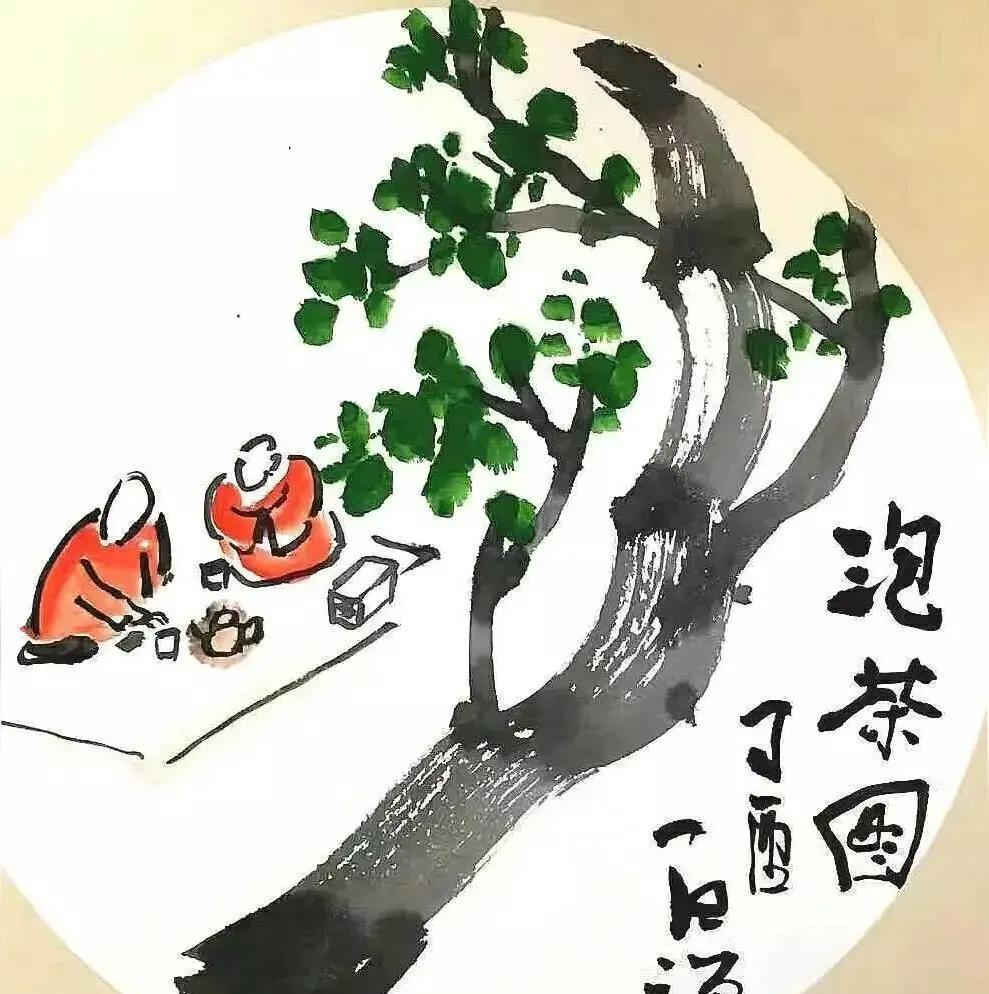 泡茶图
丁酉
一石